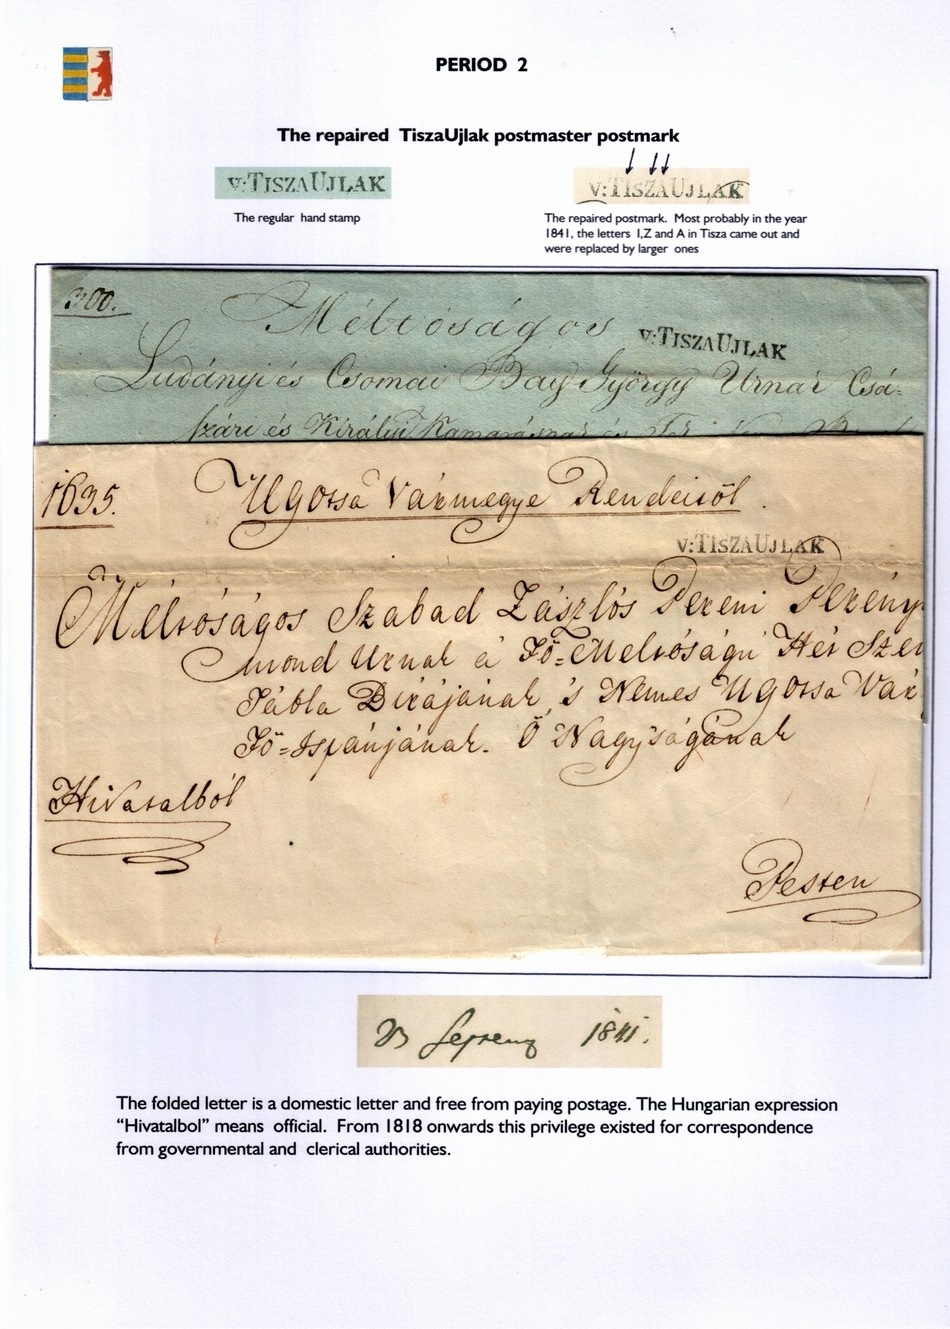 PERIOD 2
The repaired TiszaUjlak postmaster postmark
v:TISZAUJLAK
v:TISZAUJLAK
The regular hand stamp
The repaired postmark. Most probably in the year
1841, the letters I,Z and A in Tisza came out and
were replaced by larger ones
Méltóságos
v:TISZAUJLAK
Ludányi és Csomai Bay György Urnak Csá-
szári és Királyi
1635.
Ugotsa Vármegye Rendeitöl
v:TISZAUJLAK
Méltóságos Szabad Zászlós Peréni Perény
mond Urnak à Fő=Méltóságú Hét Szem
Tábla Birájának, 's Nemes Ugotsa Vár
Fő=Ispánjának. Ő Nagyságának
Hivatalból
Pesten
1841.
The folded letter is a domestic letter and free from paying postage. The Hungarian expression
“Hivatalbol” means official. From 1818 onwards this privilege existed for correspondence
from governmental and clerical authorities.